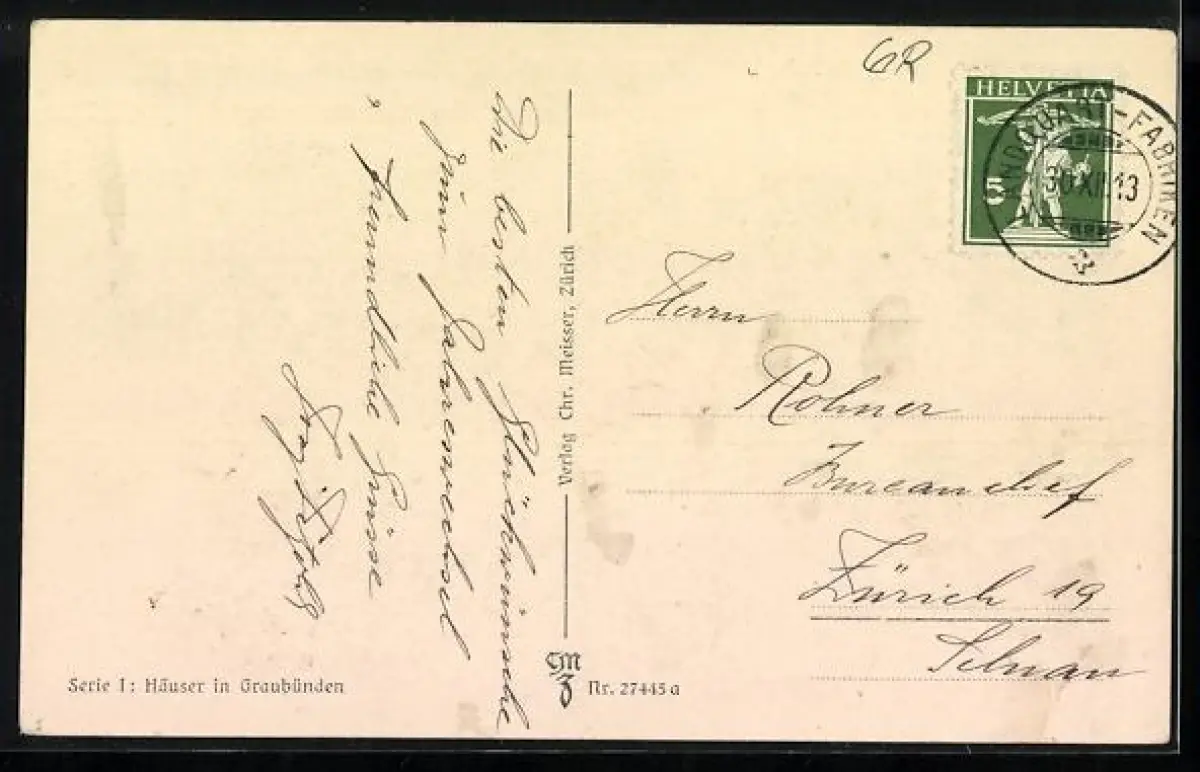 GR
HELVETIA
5
LANDQUART-FABRIKEN
30 XII 13
Die besten Glückwünsche
zum Jahreswechsel
u. freundliche Grüsse
Verlag Chr. Meisser, Zürich
Herrn
Rohner
Bureauchef
Zürich 19
Selnau
Serie I: Häuser in Graubünden
CM
Z
Nr. 27445a